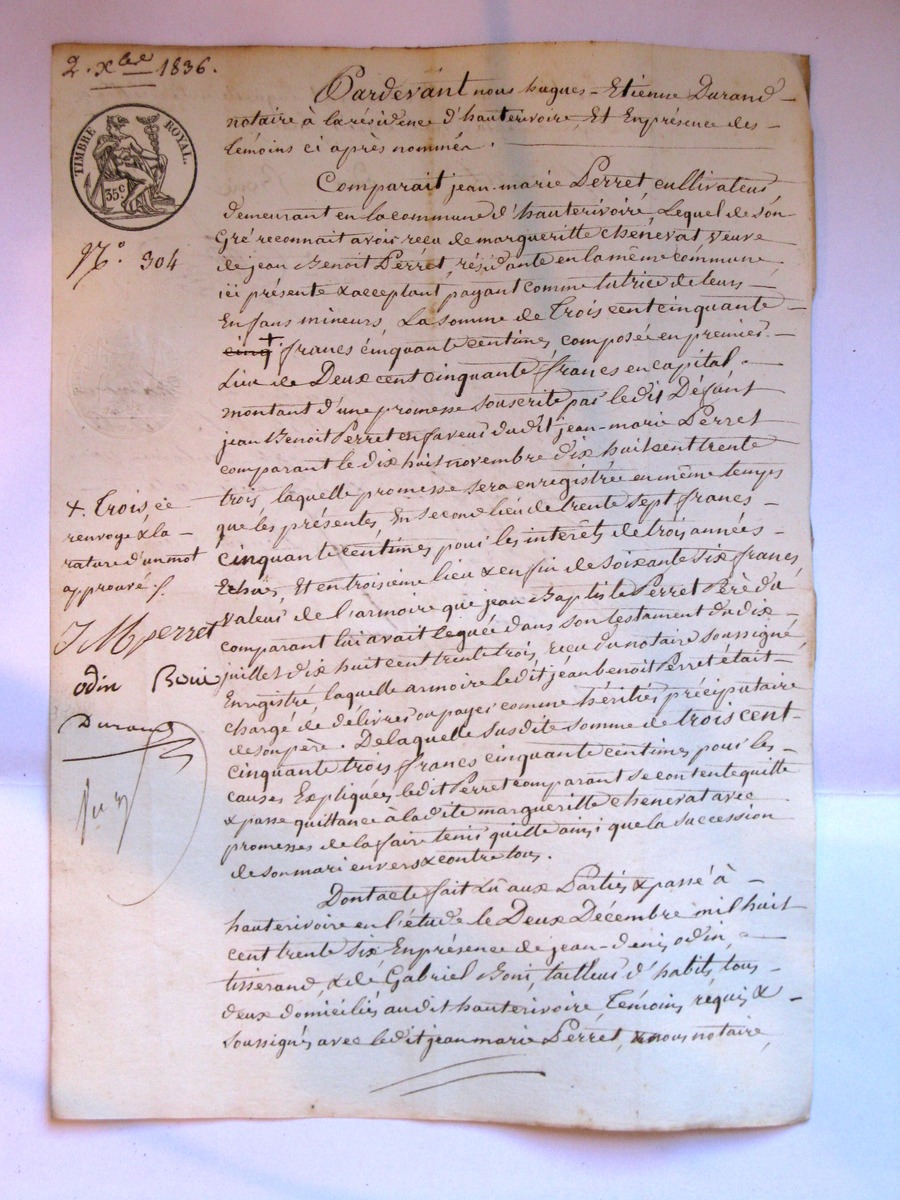 2. Xbre 1836.
TIMBRE ROYAL.
35c
N.° 304
Pardevant nous hugues-Etienne Durand
notaire à la résidence d'hauterivoire, Et En présence des
témoins ci après nommés.
Comparait jean-marie Perret cultivateur
demeurant en la commune d'hauterivoire, Lequel de son
Gré reconnait avoir reçu de margueritte chenevat, veuve
de jean Benoit Perret, résidante en la même commune,
ici présente & acceptant payant comme tutrice de leurs
Enfans mineurs, La somme de Trois cent cinquante
cinq + francs cinquante centimes, composée en premier
Lieu de Deux cent cinquante francs en capital
montant d'une promesse souscrite par ledit Défunt
jean Benoit Perret en faveur dudit jean-marie Perret
comparant le dix huit novembre dix huit cent trente
trois, laquelle promesse sera enregistrée en même temps
que les présentes, En second lieu de trente sept francs
cinquante centimes pour les intérêts de trois années
Echus, Et en troisième lieu & enfin de soixante six francs,
valeur de l'armoire que jean Baptiste Perret Père du
comparant lui avait leguée dans son testament du dix
juillet dix huit cent trente trois, reçu du notaire soussigné,
Enregistré, laquelle armoire ledit jean benoit Perret était
chargé de délivrer ou payer comme héritier préciputaire
de son père. De laquelle susdite somme de trois cent
cinquante trois francs cinquante centimes pour les
causes Expliquées ledit Perret comparant se contente quitte
& passe quittance à ladite margueritte chenevat avec
promesses de la faire tenir quitte ainsi que la succession
de son mari envers & contre tous.
Dont acte fait Lu aux Parties & passé à
hauterivoire en l'étude le Deux Décembre mil huit
cent trente six En présence de jean-denis odin,
tisserand, & de Gabriel Boni, tailleur d'habits, tous
deux domiciliés audit hauterivoire, Témoins requis &
soussignés avec ledit jean marie Perret, & nous notaire,
+. Trois, ce
renvoye & la
rature d'un mot
approuvé.
JM perret
odin Boni
Durand